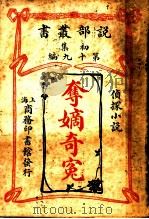 説部叢書
初集
第十九編
偵探小説
奪嫡奇冤
上海商務印書館發行